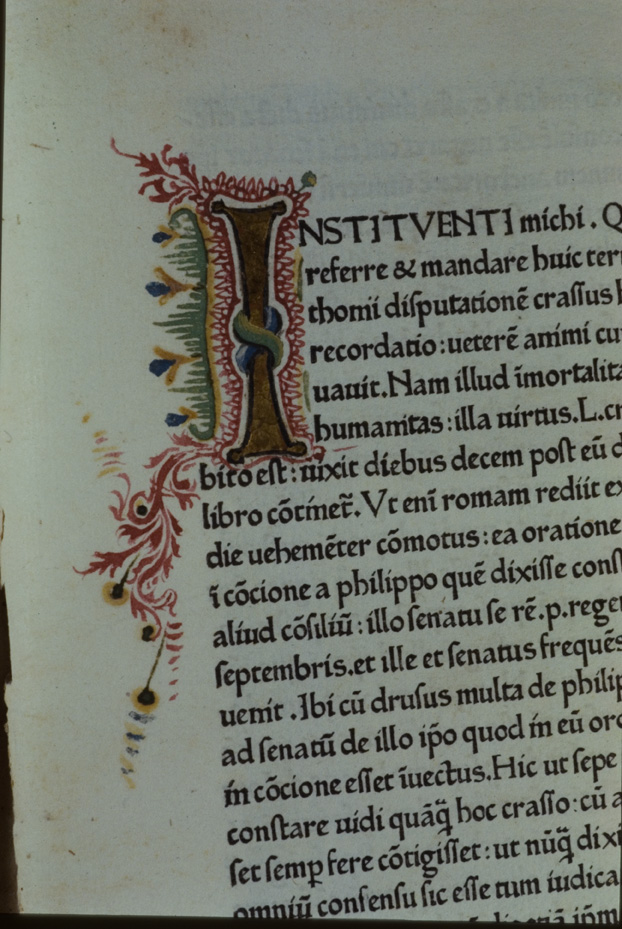 INSTITVENTI michi . Q
referre & mandare huic ter
thomi disputationē crassus
recordatio : ueterē animi cu
uauit . Nam illud īmortalita
humanitas : illa uirtus . L . cr
bito est : uixit diebus decem post eū d
libro cōtinet̄ . Vt eni romam rediit ex
die uehemēter cōmotus : ea oratione
ī cōcione a philippo quē dixisse const
aliud cōsiliū : illo senatu se rē . p . reger
septembris . et ille et senatus frequēs
uenit . Ibi cū drusus multa de philip
ad senatū de illo ip̄o quod in eū ord
in cōcione esset īuectus . Hic ut sepe
constare uidi quāq̄ hoc crassio : cū a
set semp fere cōtigisset : ut nūq̄ dixi
omniū consensu sic esse tum iudica